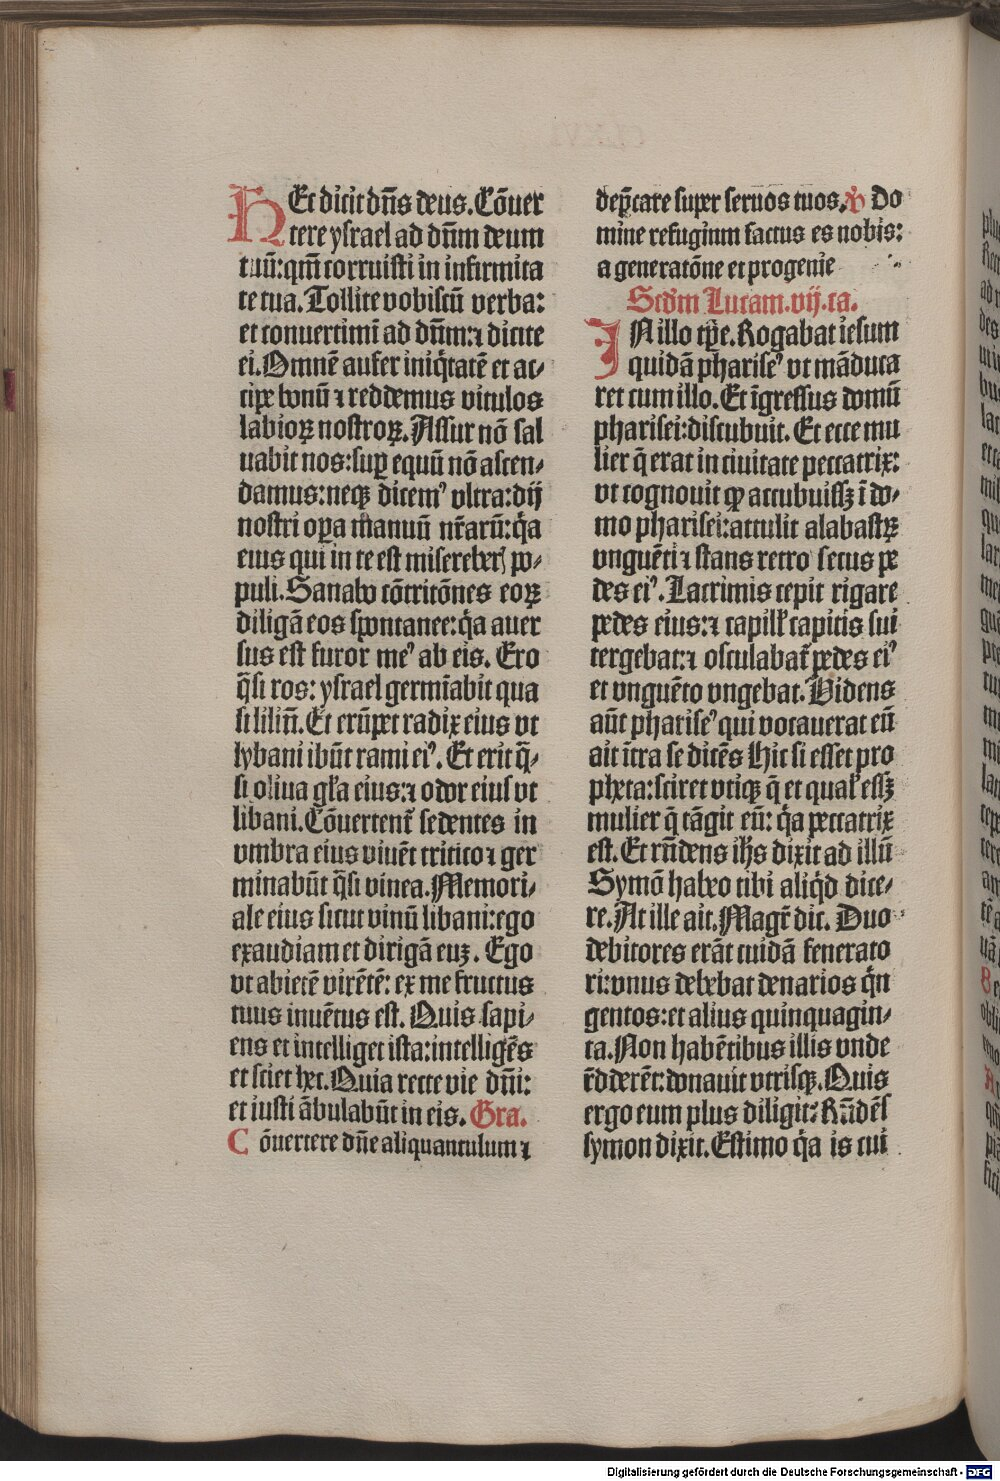 HEc dicit dñs deus. Cõuer
tere ysrael ad dñm deum
tuũ: qm̃ corruisti in infirmita
te tua. Tollite vobiscũ verba:
et conuertimĩ ad dñm: ⁊ dicite
ei. Omnẽ aufer iniq̃tatẽ et ac⸗
cipe bonũ ⁊ reddemus vitulos
labioꝝ nostroꝝ. Assur nõ sal
uabit nos: suꝑ equũ nõ ascen⸗
damus: neqꝫ dicemꝰ vltra: dij
nostri oꝑa manuũ nr̃arũ: q̃a
eius qui in te est misereber̃ po⸗
puli. Sanabo cõtritõnes eoꝝ
diligã eos spontanee: q̃a auer
sus est furor meꝰ ab eis. Ero
q̃si ros: ysrael germĩabit qua
si liliũ. Et erũpet radix eius vt
lybani ibũt rami eiꝰ. Et erit q̃⸗
si oliua gl̃a eius: ⁊ odor eius vt
libani. Cõuertent̃ sedentes in
vmbra eius viuẽt tritico ⁊ ger
minabũt q̃si vinea. Memori⸗
ale eius sicut vinũ libani: ego
exaudiam et dirigã euꝫ. Ego
vt abietẽ virẽtẽ: ex me fructus
tuus inuẽtus est. Quis sapi⸗
ens et intelliget ista: intelligẽs
et sciet hec. Quia recte vie dñi:
et iusti ãbulabũt in eis. Gra.
Cõuertere dñe aliquantulum ⁊
dep̃care super seruos tuos. ꝟ Do
mine refugium factus es nobis:
a generatõne et progenie
Scd̃m Lucam. vij. ca.
IN illo tꝑe. Rogabat iesum
quidã phariseꝰ vt mãduca
ret cum illo. Et ĩgressus domũ
pharisei: discubuit. Et ecce mu
lier q̃ erat in ciuitate peccatrix:
vt cognouit ꝙ accubuissꝫ ĩ do⸗
mo pharisei: attulit alabastꝝ
vnguẽti ⁊ stans retro secus pe
des eiꝰ. Lacrimis cepit rigare
pedes eius: ⁊ capill̃ capitis sui
tergebat: ⁊ osculabat̃ pedes eiꝰ
et vnguẽto vngebat. Videns
aũt phariseꝰ qui vocauerat eũ
ait ĩtra se dicẽs Hic si esset pro
pheta: sciret vtiqꝫ q̃ et qual̃ essꝫ
mulier q̃ tãgit eũ: q̃a peccatrix
est. Et rñdens ihs̃ dixit ad illũ
Symõ habeo tibi aliq̃d dice⸗
re. At ille ait. Magr̃ dic. Duo
debitores erãt cuidã fenerato
ri: vnus debebat denarios q̃n
gentos: et alius quinquagin⸗
ta. Non habẽtibus illis vnde
r̃dderẽt: donauit vtrisqꝫ. Quis
ergo eum plus diligit? Rñdẽs
symon dixit. Estimo q̃a is cui
Digitalisierung gefördert durch die Deutsche Forschungsgemeinschaft - DFG